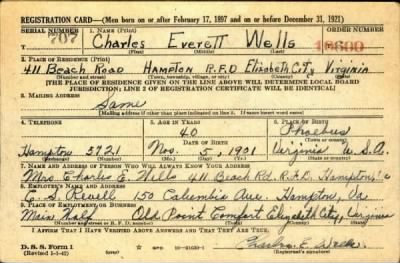 REGISTRATION CARD—(Men born on or after February 17, 1897 and on or before December 31, 1921)
SERIAL NUMBER 1. NAME (Print) ORDER NUMBER
707 Charles Everett Wells 10600
(First) (Middle) (Last)
2. PLACE OF RESIDENCE (Print)
411 Beach Road Hampton R.F.D Elizabeth City Virginia
(Number and street) (Town, township, village, or city) (County) (State)
[THE PLACE OF RESIDENCE GIVEN ON THE LINE ABOVE WILL DETERMINE LOCAL BOARD
JURISDICTION; LINE 2 OF REGISTRATION CERTIFICATE WILL BE IDENTICAL]
3. MAILING ADDRESS
Same
[Mailing address if other than place indicated on line 2. If same insert word same]
4. TELEPHONE 5. AGE IN YEARS 6. PLACE OF BIRTH
40 Phoebus
DATE OF BIRTH (Town or county)
Hampton 3721 Nov. 5, 1901 Virginia U.S.A.
(Exchange) (Number) (Mo.) (Day) (Yr.) (State or country)
7. NAME AND ADDRESS OF PERSON WHO WILL ALWAYS KNOW YOUR ADDRESS
Mrs. Charles E. Wells 411 Beach Rd. R.F.D. Hampton,
8. EMPLOYER'S NAME AND ADDRESS
150 Columbia Ave. Hampton, Va
9. PLACE OF EMPLOYMENT OR BUSINESS
Main Old Point Comfort Elizabeth City, Virginia
(Number and street or R. F. D. number) (Town) (County) (State)
I AFFIRM THAT I HAVE VERIFIED ABOVE ANSWERS AND THAT THEY ARE TRUE.
D. S. S. Form 1
(Revised 1-1-42) Charles E. Wells
(Registrant's signature)